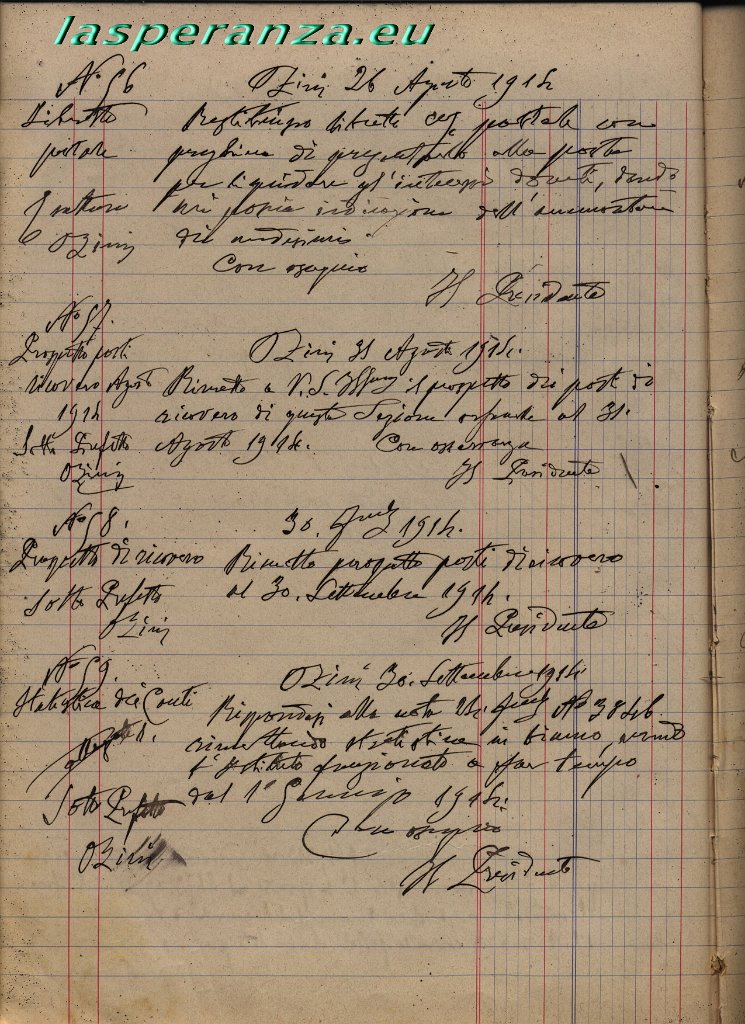 lasperanza.eu
N° 56 Ozieri 26 Agosto 1914
Libretto postale
Restituisco libretto postale con
preghiera di presentarlo alla posta
per liquidare gl'interessi dovuti, dando
indicazione dell'ammontare
dei medesimi
Ozieri
Con ossequio
Il Presidente
N° 57.
Prospetto posti
ricovero Agosto
1914
Sotto Prefetto
Ozieri
Ozieri 31 Agosto 1914.
Rimetto a V.S. Ill.ma il prospetto dei posti di
ricovero di questa Sezione al 31.
Agosto 1914. Con osservanza
Il Presidente
N° 58.
Prospetto di ricovero
Sotto Prefetto
Ozieri
30. 1914.
Rimetto prospetto posti di ricovero
al 30. Settembre 1914.
Il Presidente
N° 59.
Statistica dei Conti
Sotto Prefetto
Ozieri
Ozieri 30. Settembre 1914.
Rispondesi alla nota 24. N° 3846
rimettendo statistica in bianco, avendo
l'Istituto funzionato a far tempo
dal 1° Gennaio 1914.
Con ossequio
Il Presidente